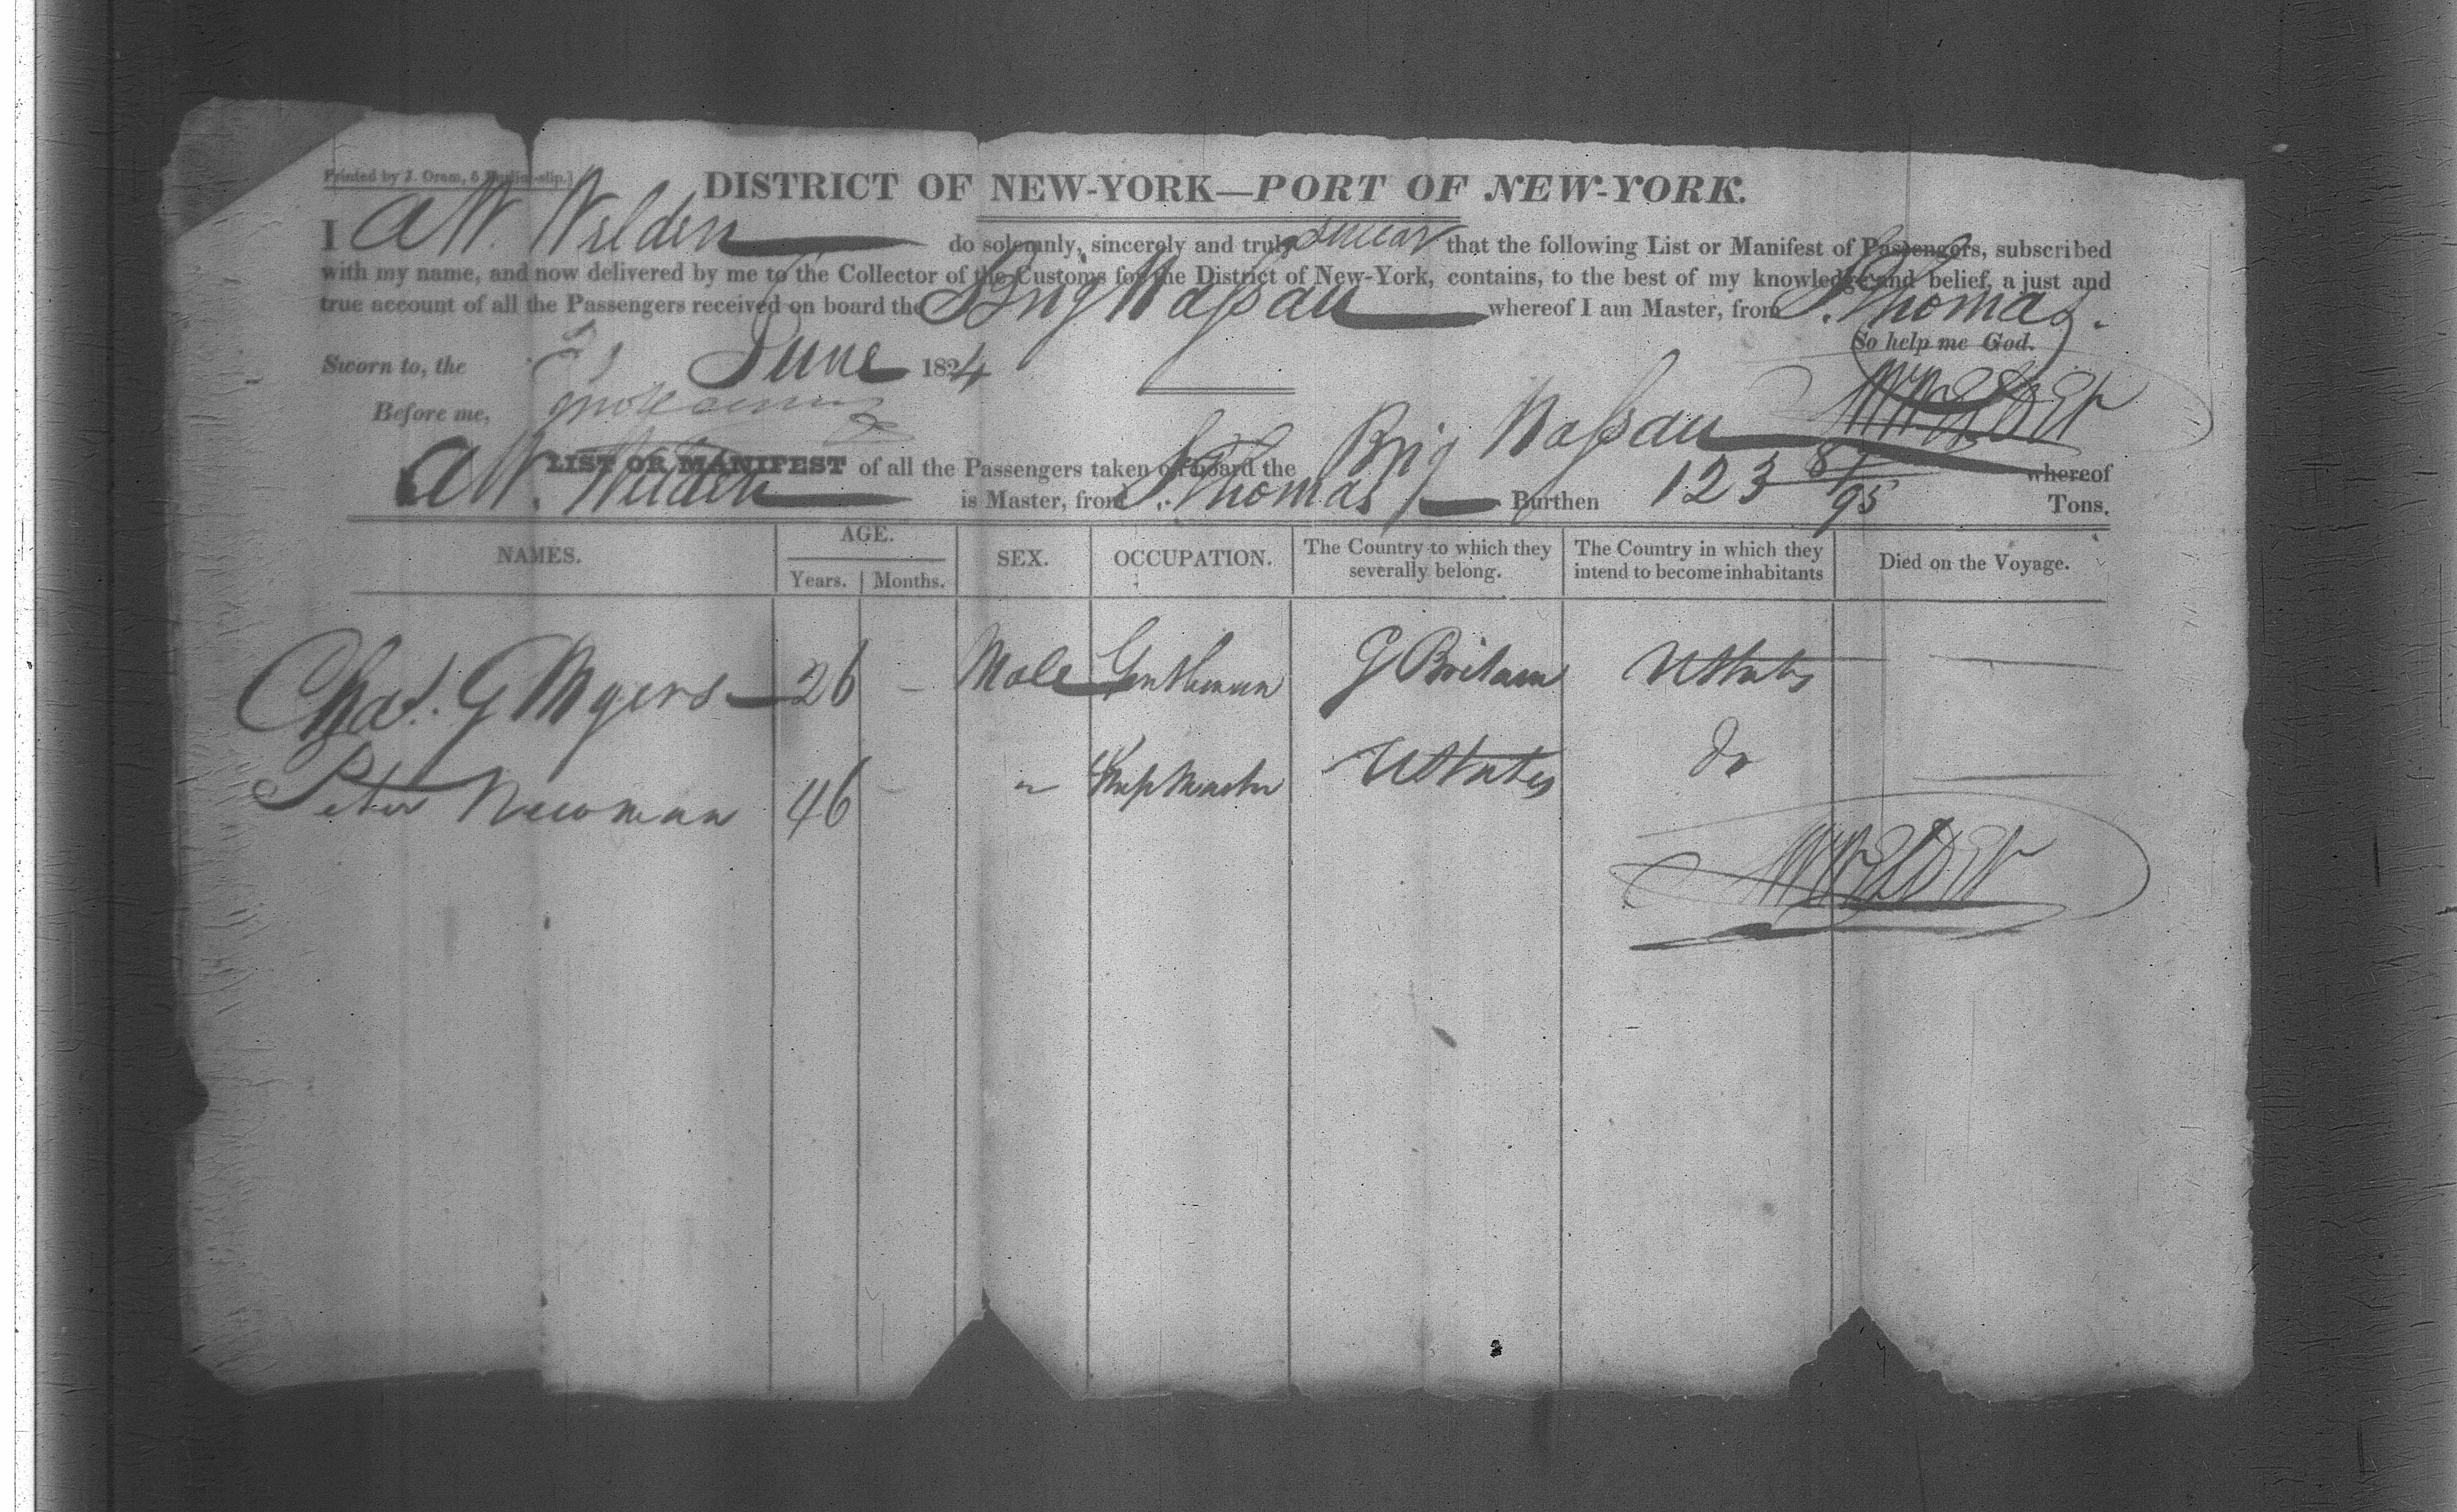 Printed by J. Oram, 5 Burling-slip.]
DISTRICT OF NEW-YORK—PORT OF NEW-YORK.
I A W. Welden do solemnly, sincerely and truly swear that the following List or Manifest of Passengers, subscribed
with my name, and now delivered by me to the Collector of the Customs for the District of New-York, contains, to the best of my knowledge and belief, a just and
true account of all the Passengers received on board the Brig Nassau whereof I am Master, from St. Thomas.
So help me God.
Sworn to, the June 1824
Before me,
AWWelden
LIST OR MANIFEST of all the Passengers taken on board the Brig Nassau whereof
A W. Welden is Master, from St. Thomas Burthen 123 87/95 Tons.
NAMES. AGE. Years. Months. SEX. OCCUPATION. The Country to which they severally belong. The Country in which they intend to become inhabitants Died on the Voyage.
Chas. G Myers 26 – Male Gentleman G Britain UStates —
Peter Newman 46 - " Ship Master UStates do —
AWWelden